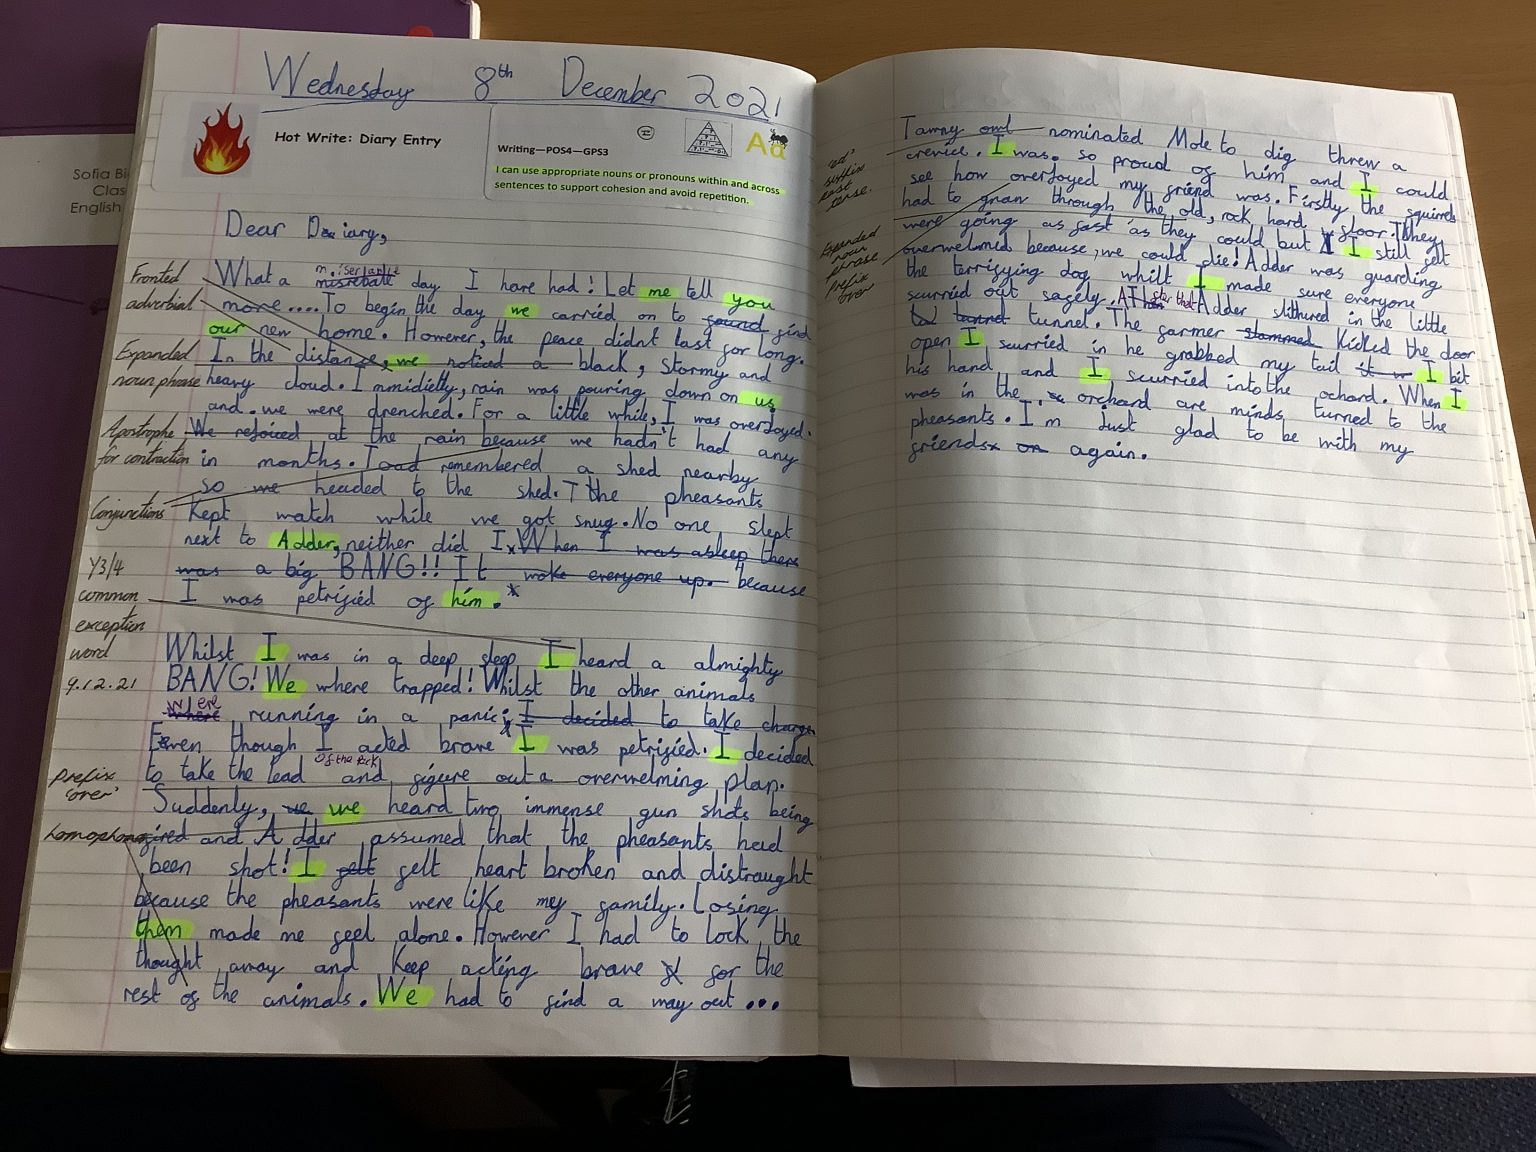 Wednesday 8th December 2021
Hot Write: Diary Entry
Writing—POS4—GPS3
Aa
I can use appropriate nouns or pronouns within and across
sentences to support cohesion and avoid repetition.
Sofia Bi
Clas
English
Dear Diary,
Fronted
adverbial
Expanded
noun phrase
Apostrophe
for contraction
Conjunctions
Y3/4
common
exception
word
9.12.21
prefix
'over'
homophone
What a miserable day I have had! Let me tell you
more.... To begin the day we carried on to find
our new home. However, the peace didnt last for long.
In the distance, we noticed a black, stormy and
heavy cloud. Immidietly, rain was pouring down on us
and we were drenched. For a little while, I was overjoyed.
We rejoiced at the rain because we hadn't had any
in months. Toad remembered a shed nearby
so we headed to the shed. The pheasants
kept watch while we got snug. No one slept
next to Adder, neither did I. When I was asleep there
was a big BANG!! It woke everyone up. because
I was petrified of him.
Whilst I was in a deep sleep I heard a almighty
BANG! We where trapped! Whilst the other animals
were running in a panic; I decided to take charge
Even though I acted brave I was petrified. I decided
to take the lead of the pack and figure out a overwelming plan.
Suddenly, we we heard two immense gun shots being
fired and Adder assumed that the pheasants had
been shot! I felt felt heart broken and distraught
because the pheasants were like my family. Losing
them made me feel alone. However I had to lock the
thought away and keep acting brave for the
rest of the animals. We had to find a way out...
'ed'
suffix
past
tense.
Expanded
noun
phrase
prefix
'over'
Tawny owl nominated Mole to dig threw a
crevice. I was so proud of him and I could
see how overjoyed my friend was. Firstly the squirrels
had to gnaw through the old, rock hard floor. They
were going as fast as they could but I still felt
overwelmed because, we could die! Adder was guarding
the terrifying dog whilt I made sure everyone
scurried out safely. After that Adder slithered in the little
tunnel tunnel. The farmer slammed kicked the door
open I scurried in he grabbed my tail I bit
his hand and I scurried into the ochard. When I
was in the orchard are minds turned to the
pheasants. I'm Just glad to be with my
friends on again.